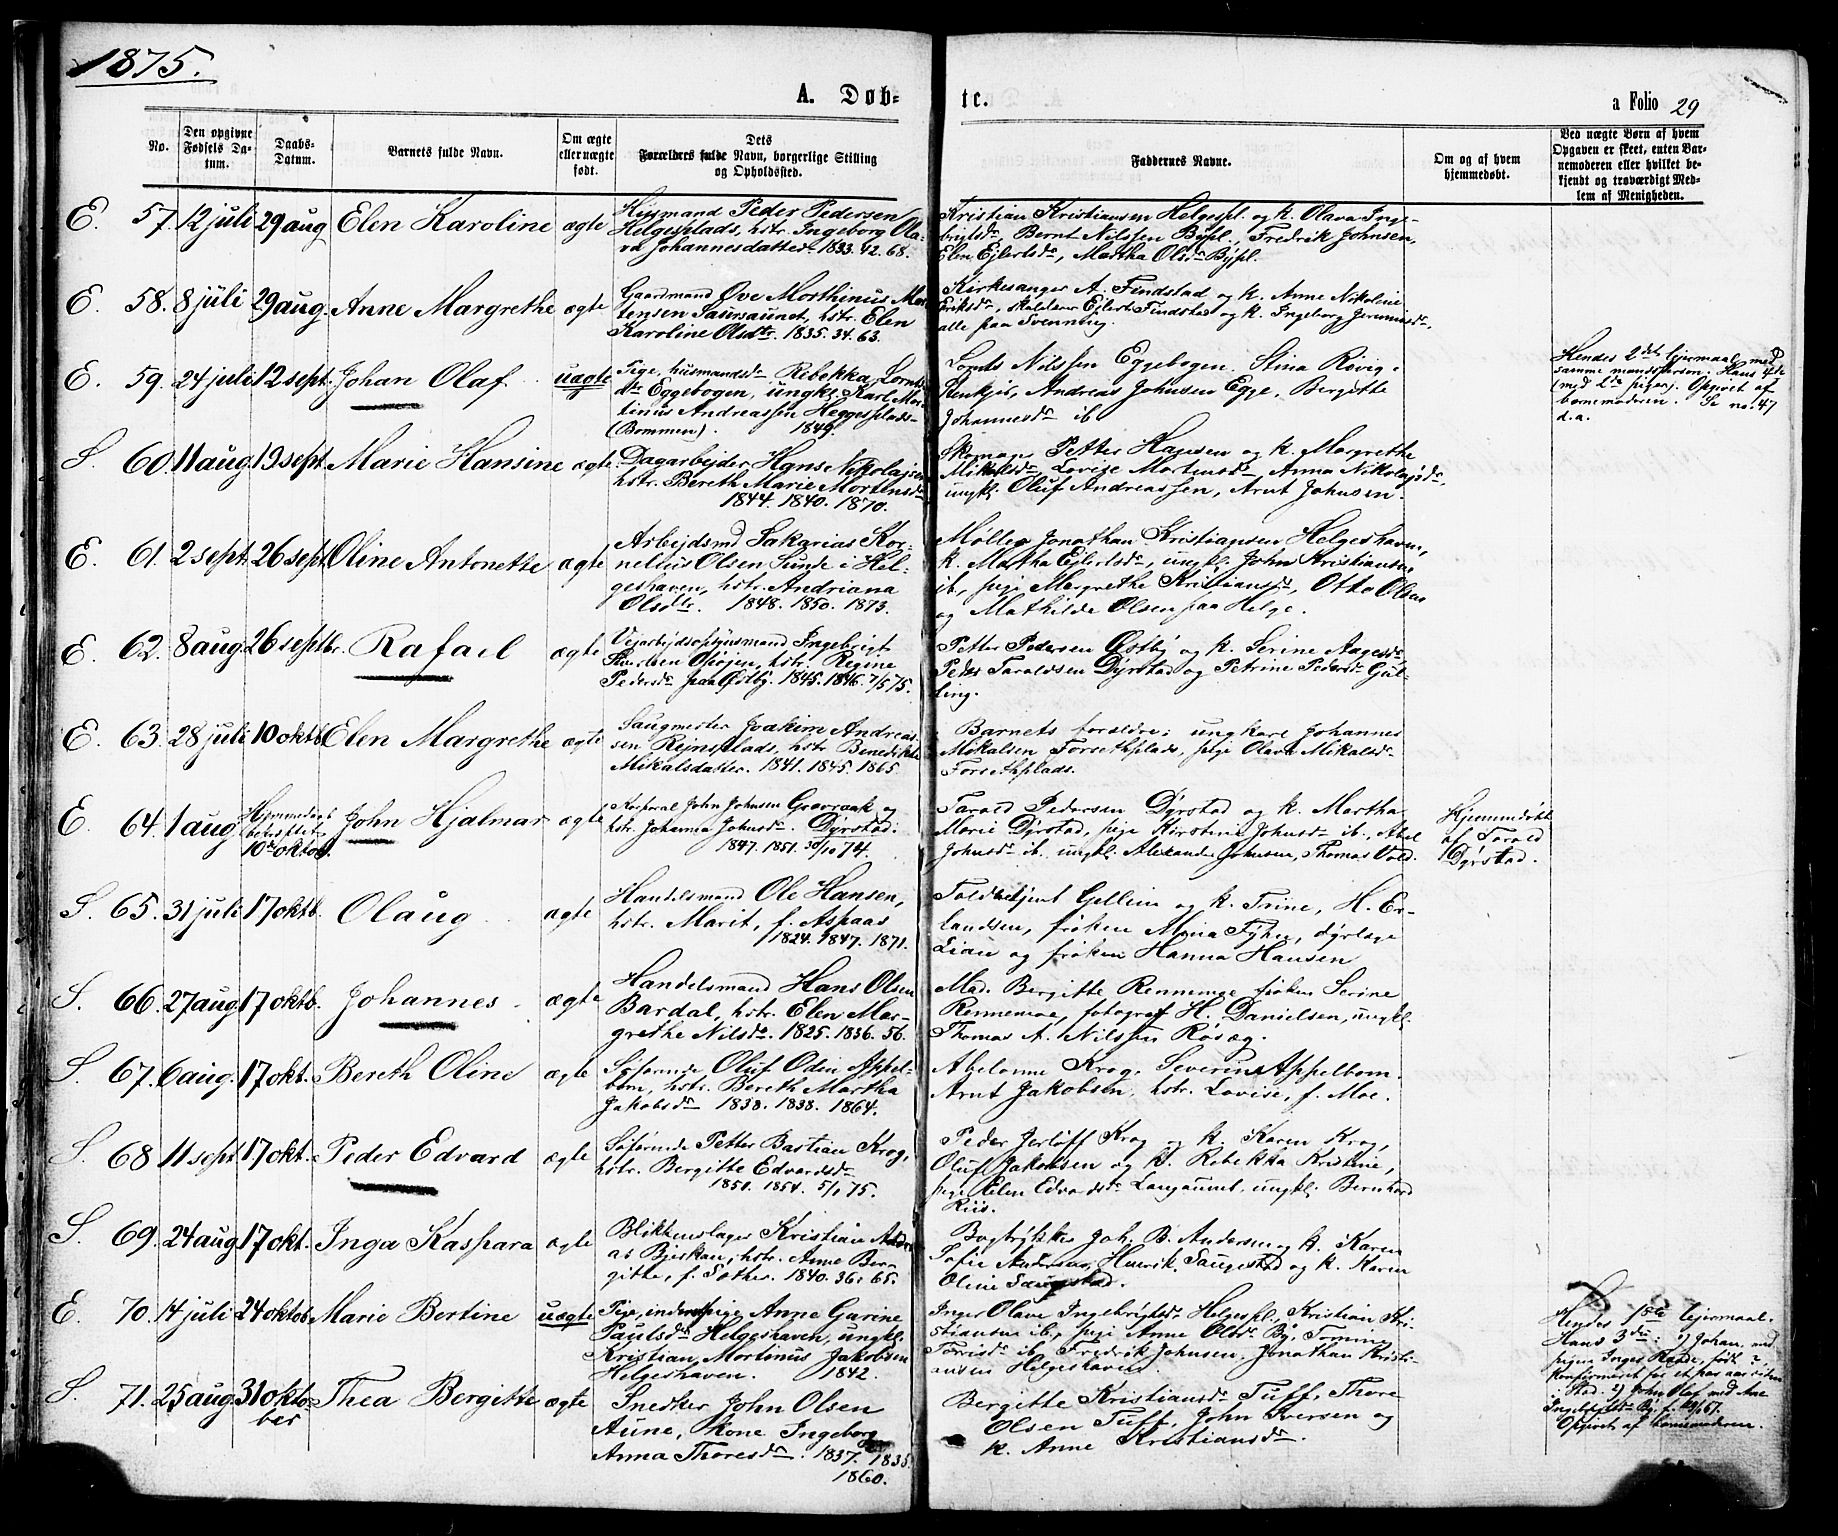 1875.
A. Døb-
te.
a Folio 29
No.
Den opgivne Fødsels Datum.
Daabs-Datum.
Barnets fulde Navn.
Om ægte eller uægte født.
Dets Forældres fulde Navn, borgerlige Stilling og Opholdssted.
Faddernes Navne.
Om og af hvem hjemmedøbt.
Ved uægte Børn af hvem Opgaven er skeet, enten Barnemoderen eller hvilket bekjendt og troværdigt Medlem af Menigheden.
E. 57. 12 juli 29 aug Elen Karoline ægte
Husmand Peder Pedersen
Helgesplads, hstr. Ingeborg Ola-
va Johannesdatter. 1833. 42. 68.
Kristian Kristiansen Helgespl. og k. Olava Inge-
brigtsdr, Bernt Nilssen Bypl., Fredrik Johnsen,
Elen Ejlertsdr, Martha Olsdr Bypl.
E. 58. 8 juli 29 aug. Anne Margrethe ægte
Gaardmand Ove Morthinus Mor-
tensen Saursaunet, hstr. Elen
Karoline Olsdtr. 1835. 34. 63.
Kirkesanger A. Findstad og k. Anne Nikoline
Eriksdr, Ejlert Findstad og k. Ingeborg
alle paa Svenning.
E. 59. 24 juli 12 sept. Johan Olaf uægte
Pige, husmandsdr Rebekka Lornts-
dr Eggebogen, ungkl. Karl Mar-
tinius Andreassen Heggesplads-
(Bommen). 1849.
Lornts Nilssen Eggebogen. Stina Røvig.
Stenkjær, Andreas Johnsen Egge, Bergitte
Johannesdr ib.
Hendes 2det lejermaal med
samme mandsperson. Hans 4de
(med 2de piger). Opgivet af
barnemoderen. Se no. 47
d.a.
S. 60. 11 aug 19 sept. Marie Hansine ægte
Dagarbejder Hans Nikolajsen
hstr. Bereth Marie Mortensdr
1844. 1840. 1870.
Skomager Petter Hansen og k. Margrethe
Mikalsdr, Lovise Mortensdr, Anna Nikolajsdr
ungkl. Oluf Andreassen, Arnt Johnsen.
E. 61. 2 sept. 26 sept. Oline Antonette ægte
Arbejdsmd Sakarias Kor-
nelius Olsen Sunde i Hel-
geshaven, hstr. Andriana
Olsdtr. 1848. 1850. 1873.
Møller Jonathan Kristiansen Helgeshaven,
k. Martha Ejlertsdr, ungkl. John Kristiansen
ib., pige Margrethe Kristiansdr, Otto Olsen
og Mathilde Olsen paa Helge.
E. 62. 8 aug 26 septbr. Rafael ægte
Vejarbejdsopsynsmand Ingebrigt
Iversen Opøjen, hstr. Regine
Pedersdr paa Østby. 1845. 1846. 7/5 75.
Petter Pedersen Østby og k. Serine Aagesdr
Peder Taraldsen Dyrstad og Petrine Pedersdr Gul-
ling.
E. 63. 28 juli 10 oktb. Elen Margrethe ægte
Saugmester Joakim Andreas-
sen Rejnsplads, hstr. Benedikte
Mikalsdatter. 1841. 1845. 1865.
Barnets forældre; ungkarl Johannes
Mikalsen Forsethplads, pige Olava Mikalsdr
Forsethplads.
E. 64. 1 aug Hjemmedaab bekræftet 10de oktob. John Hjalmar ægte
Korporal John Johnsen Grøvraak og
hstr. Johanna Johnsdr. Dyrstad.
1847. 1851. 30/10 74.
Tarald Pedersen Dyrstad og k. Martha
Marie Dyrstad, pige Kirstine Johnsdr ib., Abel
Johnsdr ib. ungkl. Alexander Johnsen, Thomas Vold.
Hjemmedøbt
af Tarald
Dyrstad.
S. 65. 31 juli 17 oktb. Olaug ægte
Handelsmand Ole Hansen,
hstr. Marit, f. Aspaas
1824. 1847. 1871.
Toldbetjent Gellein og k. Trine, H. Er-
landsen, frøken Mina Tyhn, dyrlæge
Lian og frøken Hanna Hansen
S. 66. 27 aug 17 oktb. Johannes ægte
Handelsmand Hans Olsen
Bardal, hstr. Elen Mar-
grethe Nilsdr. 1825. 1836. 56.
Mad. Bergitte Rennemoe frøken Serine
Rennemoe, fotograf H. Danielsen, ungkl.
Thomas A. Nilssen Røseg.
S. 67. 6 aug. 17 okt. Bereth Oline ægte
Søfarende Oluf Odin Appel-
bom, hstr. Bereth Martha
Jakobsdr 1838. 1838. 1864.
Abelonne Krog. Severin Appelbom.
Arnt Jakobsen, hstr. Lovise, f. Moe.
S. 68. 11 sept 17 okt. Peder Edvard ægte
Søfarende Petter Bastian Krog,
hstr. Bergitte Edvardsdr
1851. 1854. 5/1 75.
Peder Jerløff Krog og k. Karen Krog,
Oluf Jakobsen og k. Rebekka Kristine,
pige Elen Edvardsdr Langaunet, ungkl. Bernhard
Riis.
S. 69. 24 aug 17 okt. Inga Kaspara ægte
Blikkenslager Kristian Andre-
as Bjerkan, hstr. Anne Ber-
gitte, f. Sather. 1840. 36. 65.
Bogtrykker Joh. B. Andersen og k. Karen
Sofie Andersen, Henrik Saugestad og k. Karen
Oline Saugestad.
E. 70. 14 juli 24 oktob. Marie Bertine uægte
Pige, inderstpige Anne Gurine
Paulsdr Helgeshaven, ungkl.
Kristian Mortinus Jakobsen
Helgeshaven. 1842.
Inger Olave Ingebrigtsdr Helgespl., Kristian Kri-
stiansen ib., pige Anne Olsdr By, Tommine
Torrisdr ib. Fredrik Johnsen. Jonathan Kristi-
ansen Helgeshaven.
Hendes 1ste lejermaal.
Hans 3die: 1) Johan, med
pigen Inger Raade, født i
konfirmeret for et par aar siden
Stad. 2) John Olaf med Ane
Ingebrigtsdr By, f. 67.
Opgivet af barnemoderen.
S. 71. 25 aug 31 oktober Thea Bergitte ægte
Snedker John Olsen
Aune, kone Ingeborg
Anna Thoresdr. 1837. 1835.
1860.
Bergitte Kristiansdr Tuff, Thore
Olsen Tuff, John Iversen og
k. Anne Kristiansdr.